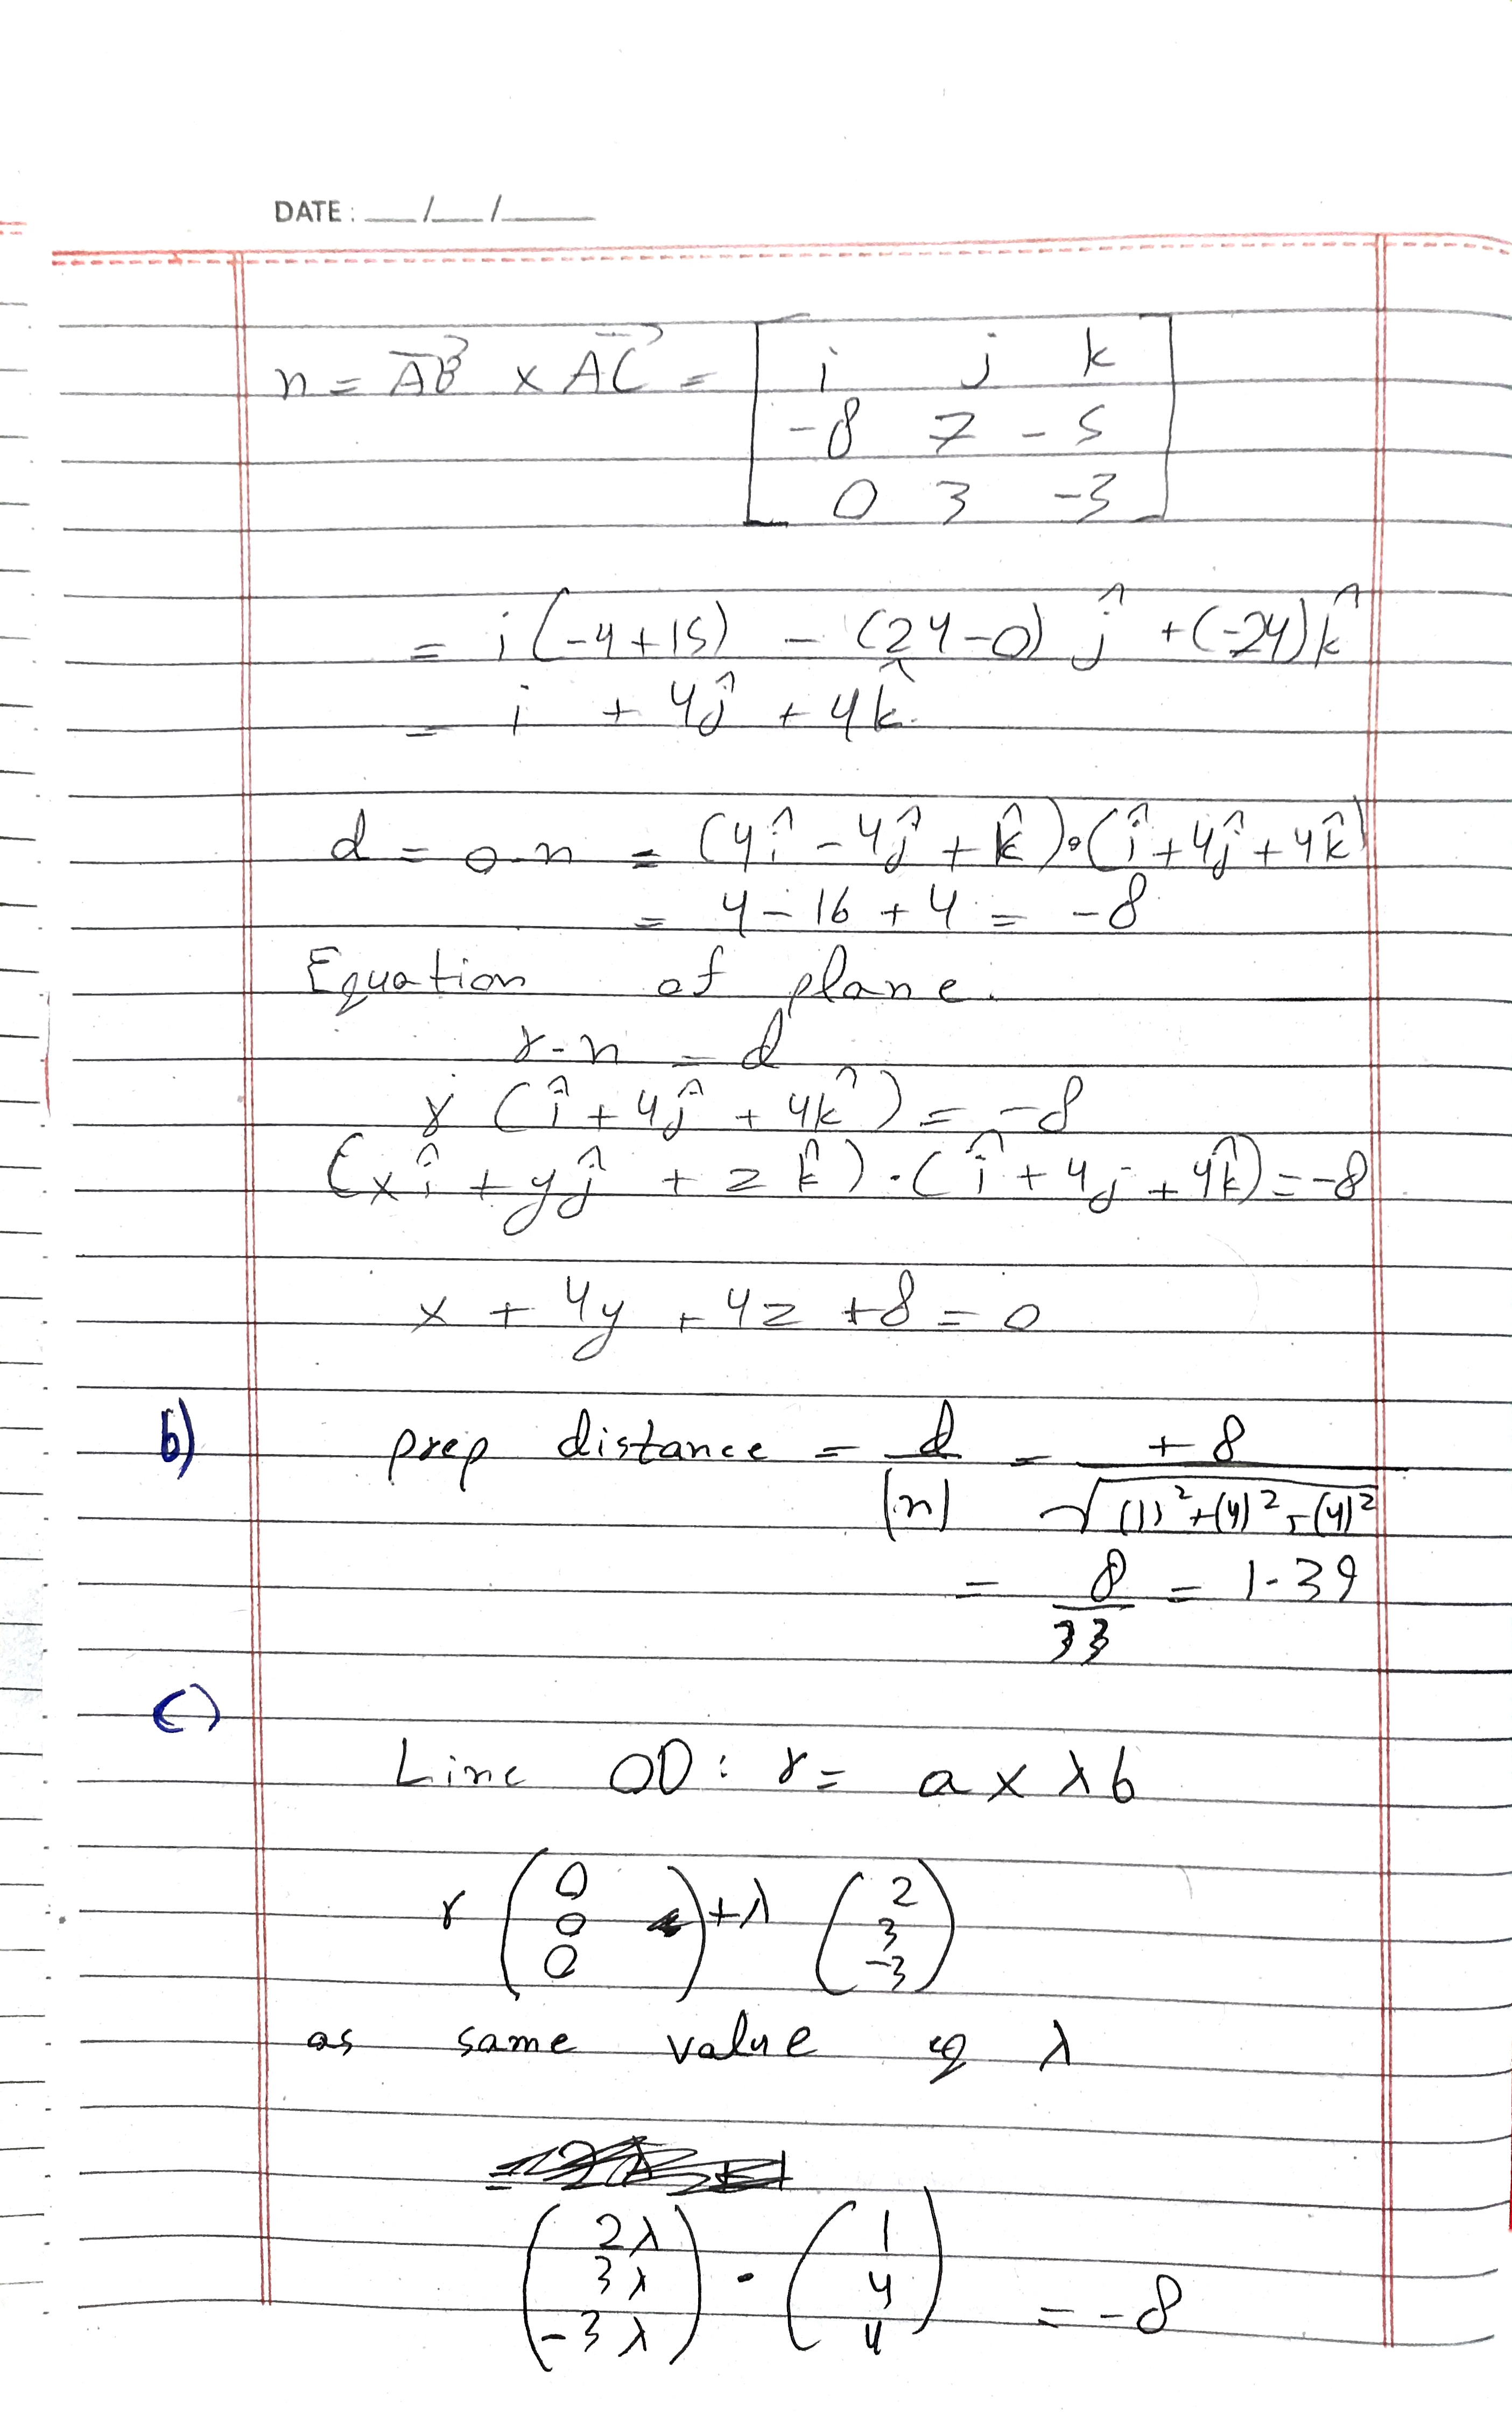 DATE: __/__/____
n = AB × AC = | i j k |
-8 7 -5
0 3 -3
= i(-4+15) - (24-0) ĵ + (-24) k̂
= i + 4ĵ + 4k̂
d = o-n = (4î - 4ĵ + k̂)•(î + 4ĵ + 4k̂)
= 4 - 16 + 4 = -8
Equation of plane.
r-n = d
r (î + 4ĵ + 4k̂) = -8
(xî + yĵ + zk̂)·(î + 4j + 4k̂) = -8
x + 4y + 4z + 8 = 0
b) prep distance = d/|n| = +8/√((1)²+(4)²+(4)²)
= 8/33 = 1-39
c)
Line OD: r = a × λb
r (0 0 0) + λ (2 3 -3)
as same value of λ
(2λ 3λ -3λ) · (1 4 4) = -8